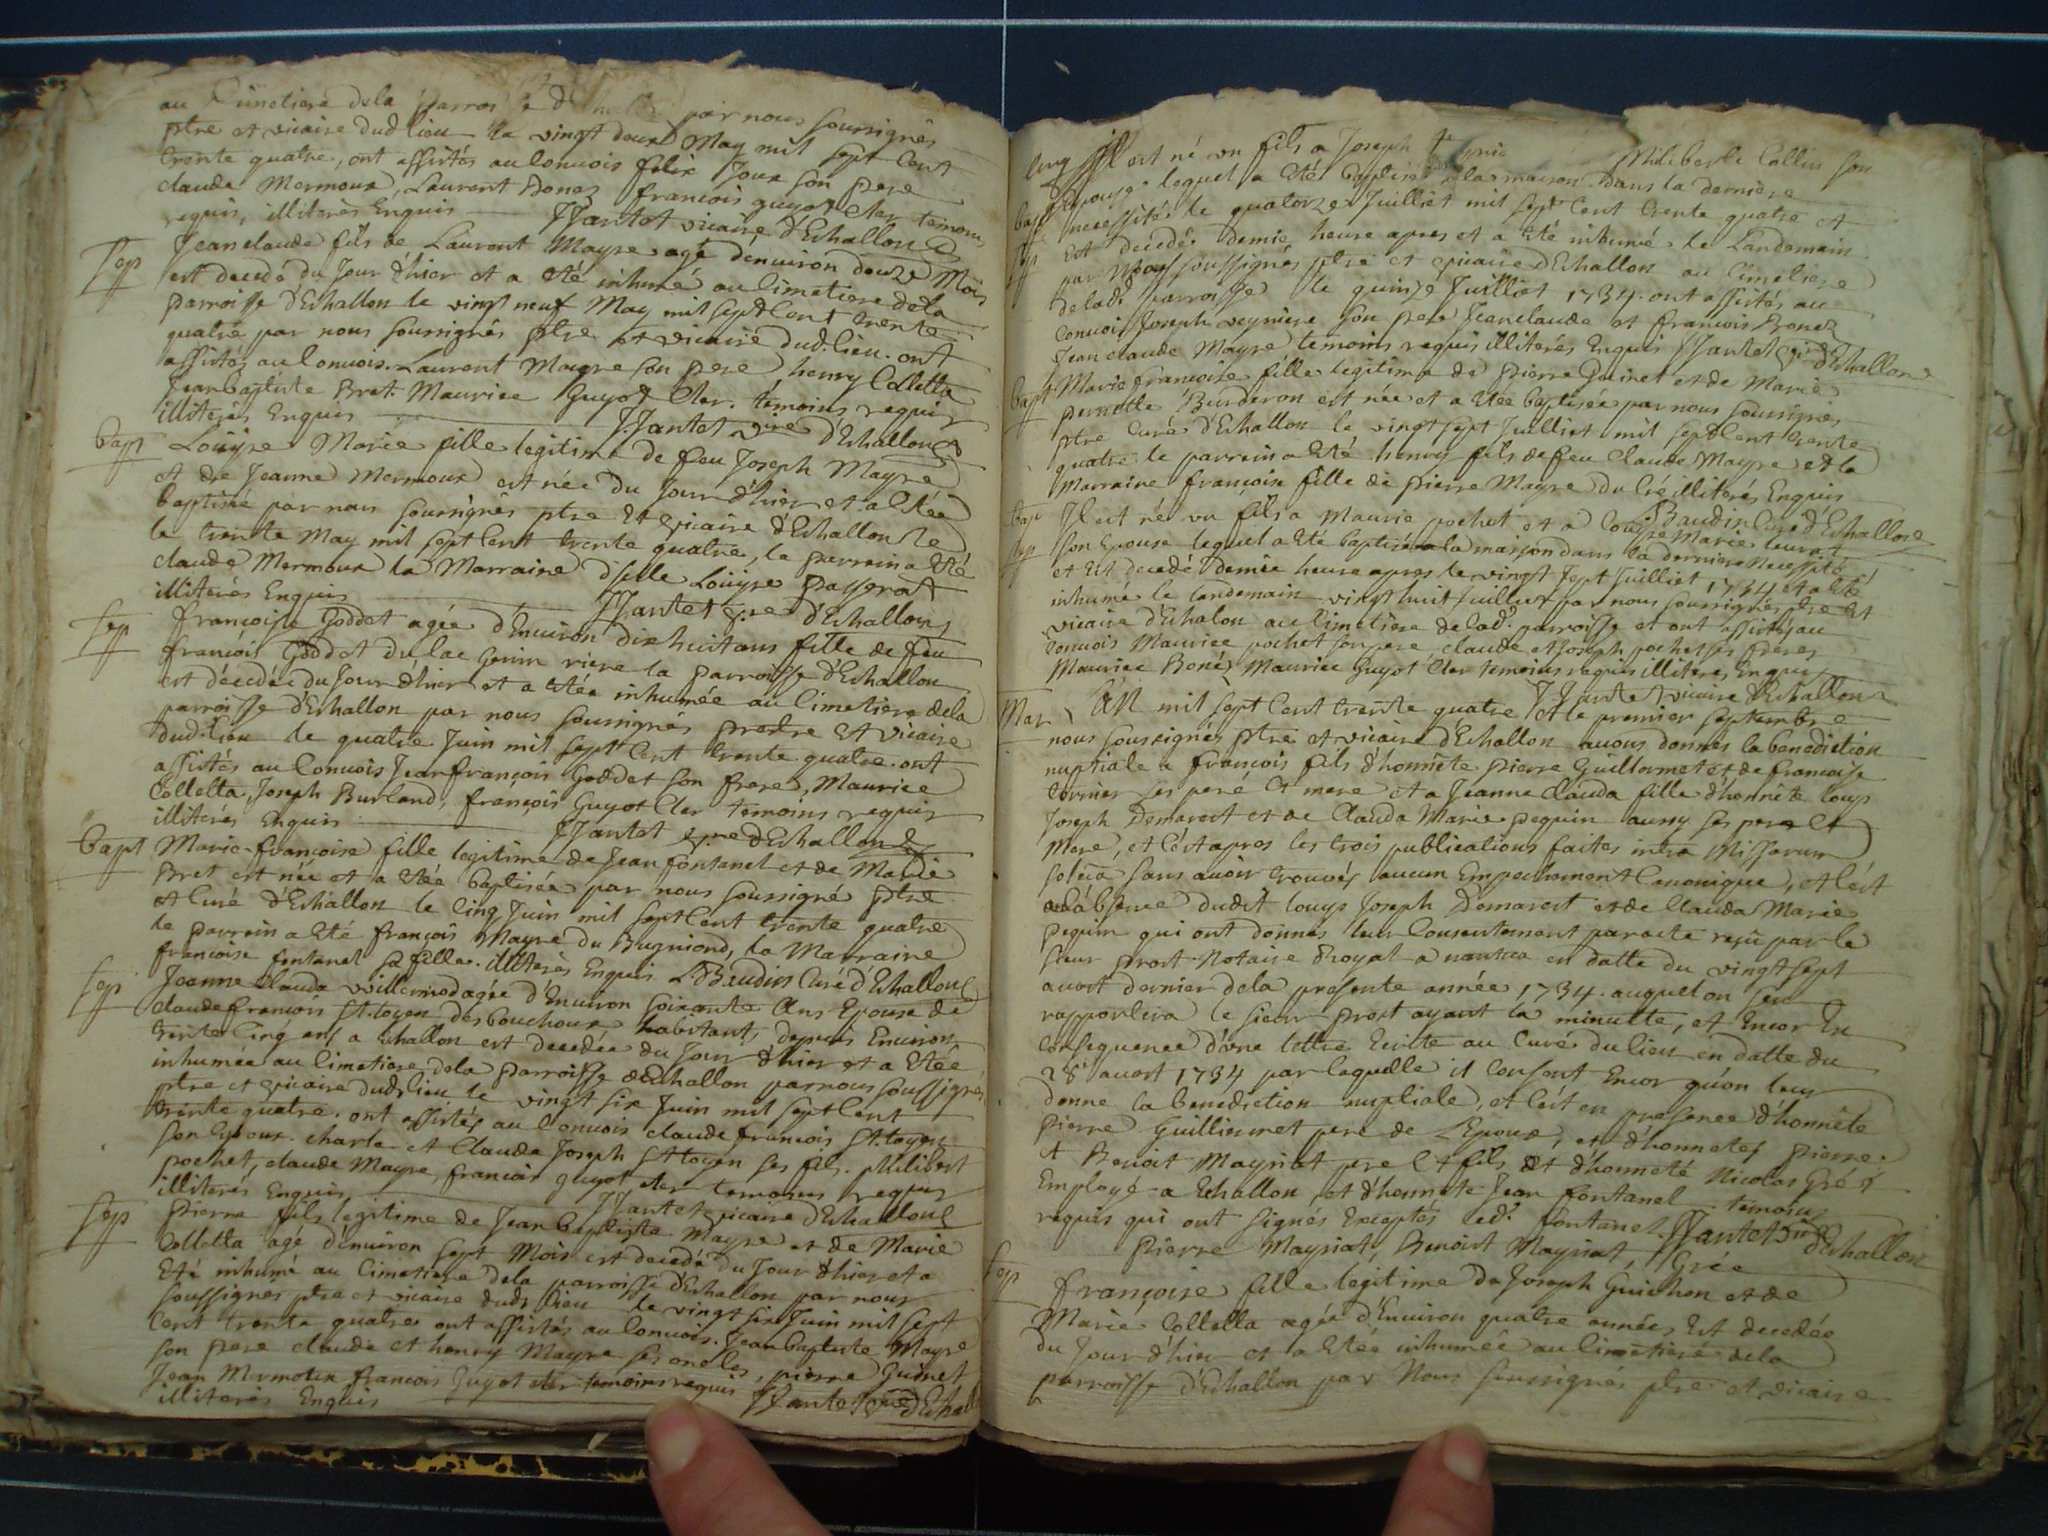 au Cimetiere dela parroisse d par nous soussignés
ptre et vicaire dud lieu le vingt deux May mil sept cent
trente quatre, ont assistés au Convois felix Joux son pere
claude Mermoux, Laurent Bonez françois guyot Cler temoins
requis, illiterés Enquis JJantet vicaire d'Echallon
Sep Jeanclaude fils de Laurent Mayre agé d'enuiron douze Mois
est decedé du Jour d'hier et a eté inhumé au Cimetiere dela
parroisse d'Echallon le vingt neuf May mil sept Cent trente
quatre par nous soussignés ptre et vicaire dud. lieu. ont
assistés au Convois. Laurent Mayre son pere henry Colletta
Jean baptiste Bret. Maurice Guyot Cler. témoins requis
illiterés Enquis JJantet vire d'Echallon
Bapt Louyse Marie fille legitime de feu Joseph Mayre
et de Jeanne Mermoux est née du Jour d'hier et a etée
baptisée par nous soussignés ptre et vicaire d'Echallon le
le trente May mil sept Cent trente quatre, le parrein a eté
claude Mermoux la Marraine dselle Louyse Passerat
illiterés Enquis JJantet v.re d'Echallon
Sep françoise Goddet agée d'Enuiron dix huit ans fille de feu
françois Goddet du lac Genin riere la parroisse d'Echallon
est décedée du Jour d'hier et a etée inhumée au Cimetiere dela
parroisse d'Echallon par nous soussignés prestre et vicaire
dud. lieu le quatre Juin mil sept Cent trente quatre. ont
assistés au Convois Jeanfrançois Goddet son frere, Maurice
Colletta, Joseph Burland, françois Guyot Cler temoins requis
illiterés Enquis JJantet v.re d'Echallon
Bapt Marie-françoise fille legitime de Jean fontanel et de Marie
Bret est née et a etée baptisée par nous soussigné ptre
et Curé d'Echallon le Cinq Juin mil sept Cent trente quatre
le parrein a eté françois Mayre du Bugniond, la Marraine
françoise fontanel sa fille. illiterés Enquis LBaudin Curé d'Echallon
Sep Jeanne Clauda vuillermod agée d'Enuiron soixante Ans Epouse de
claude françois St. toyen des bouchoux habitant, depuis Enuiron
trente Cinq ans a Echallon est decedée du Jour d'hier et a etée
inhumée au Cimetiere dela parroisse d'Echallon par nous soussigné
ptre et vicaire dud. lieu le vingt six Juin mil sept Cent
trente quatre. ont assistés au Convois claude françois St. toyen
son Epoux. charle et Claude Joseph St toyen ses fils. philibert
pochet, claude Mayre, françois guyot cler temoins requis
illiterés Enquis JJantet vicaire d'Echallon
Sep Pierre fils legitime de Jean baptiste Mayre et de Marie
Colletta agé d'enuiron sept Mois est decedé du Jour d'hier et a
Eté inhumé au Cimetiere dela parroisse d'Echallon par nous
soussignés ptre et vicaire dudt lieu le vingt six Juin mil sept
Cent trente quatre ont assistés au Convois. Jean baptiste Mayre
son pere claude et henry Mayre ses oncles, pierre Guinet
Jean Mermotux francois Guyot cler temoins requis
illiterés Enquis JJantet vire d'Echall
Il est né un fils a Joseph Philiberte Collin son
Bapt Epouse lequel a eté baptisé a la maison dans la derniere
necessité le quatorze Juilliet mil sept Cent trente quatre et
Sep Est decedé demie heure apres et a eté inhumé le Landemain
par Nous soussignés ptre et vicaire d'Echallon au Cimetiere
delad. parroisse le quinze Juilliet 1734. ont assistés au
Convois Joseph veyniere son pere Jeanclaude et françois Bonez
Jean claude Mayre temoins requis illiterés Enquis JJantet vire d'Echallon
Bapt Marie françoise fille legitime de pierre Guinet et de Marie
pernette Burderon est née et a etée baptisée par nous soussignés
ptre Curé d'Echallon le vingt sept Juilliet mil sept Cent trente
quatre le parrein a eté henry fils de feu Claude Mayre et la
Marraine françoise fille de pierre Mayre du Cré illiterés Enquis
LBaudin Curé d'Echallon
Bap Il est né un fils a Maurice pochet et a Louise Marie
Sep son Epouse lequel a eté baptisé a la maison dans la derniere Necessité
et est decedé demie heure apres le vingt sept Juilliet 1734 et a eté
inhumé le landemain vingt huit Juilliet par nous soussignés ptre et
vicaire d'Echalon au Cimetiere delad. parroisse et ont assistés au
convois Maurice pochet son pere, claude et Joseph pochet ses freres
Maurice Bonéz Maurice Guyot Cler temoins requis illiterés Enquis
JJantet vicaire d'Echallon
Mar L'an mil sept Cent trente quatre et le premier septembre
nous soussignés ptre et vicaire d'Echallon auons donnés la benediction
nuptiale a françois fils d'honnête pierre Guillermet et de françoise
Cornier ses pere et mere et a Jeanne Clauda fille d'honnête louys
Joseph Demarest et de Clauda Marie pequin aussy ses pere et
Mere, et C'est apres les trois publications faites intra Missarum
solem̃ia sans auoir trouvés aucun Empechement Canonique, et C'est
en l'absence dudit louys Joseph Demarest et de Clauda Marie
pequin qui ont donnés leur Consentement par acte reçû par le
sieur prost Notaire Royal a nantua en datte du vingt sept
avost dernier dela presente année 1734. auquel on sen
rapportera le sieur prost ayant la minutte, et Encor En
Consequence d'une lettre Ecritte au Curé du lieu en datte du
28 avost 1734 par laquelle il Consent Encor qu'on leur
donne la benediction nuptiale, et C'est en presence d'honnête
pierre Guilliermet pere de L'Epoux, et d'honnetes pierre
et Benoit Mayriat pere et fils et d'honneté Nicolas Gréé
Employé a Echallon, et d'honnete Jean fontanel temoins
requis qui ont signés Exceptés led. fontanel. JJantet Vire d'Echallon
Pierre Mayriat, Benoist Mayriat, Grée
Sep françoise fille legitime de Joseph Guichon et de
Marie Colletta agée d'Enuiron quatre années est decedée
du Jour d'hier et a etée inhumée au Cimetiere dela
parroisse d'Echallon par Nous soussignés ptre et vicaire